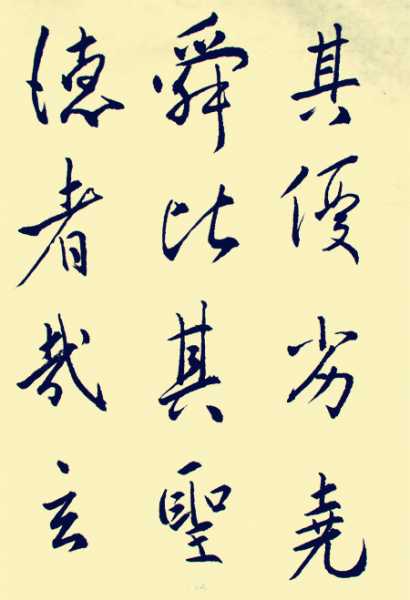 其優劣堯
舜比其聖
德者哉玄